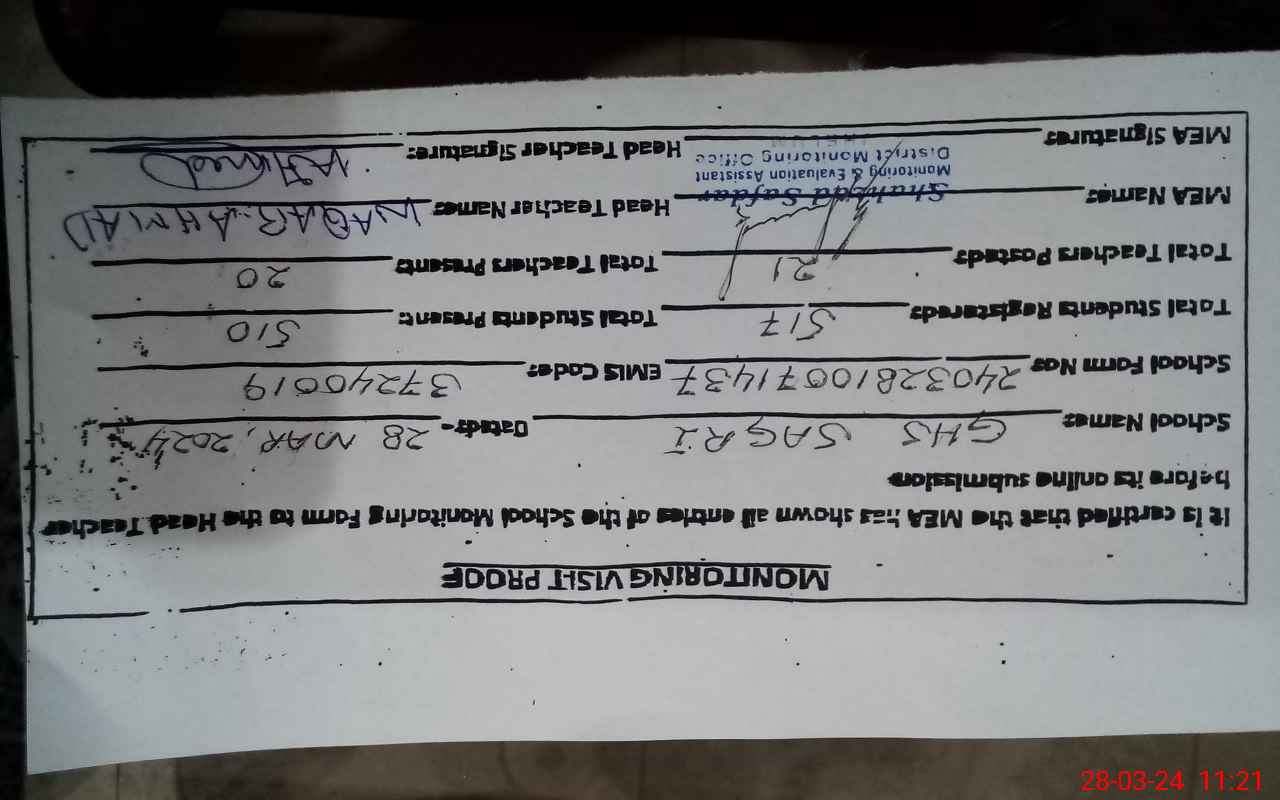 MONITORING VISIT PROOF
It is certified that the MEA has shown all entries of the School Monitoring Form to the Head Teacher
before its online submission
School Name: GHS SAGRI Dated:- 28 MAR, 2024
School Form No: 2403281007 1437 EMIS Code: 37240019
Total Students Registered: 517 Total Students Present: 510
Total Teachers Posted: 21 Total Teachers Present: 20
MEA Name: Shahzad Safdar Head Teacher Name: WAQAR AHMAD
Monitoring & Evaluation Assistant
District Monitoring Office
JHELUM
MEA Signature: Head Teacher Signature: WAhmed
28-03-24 11:21